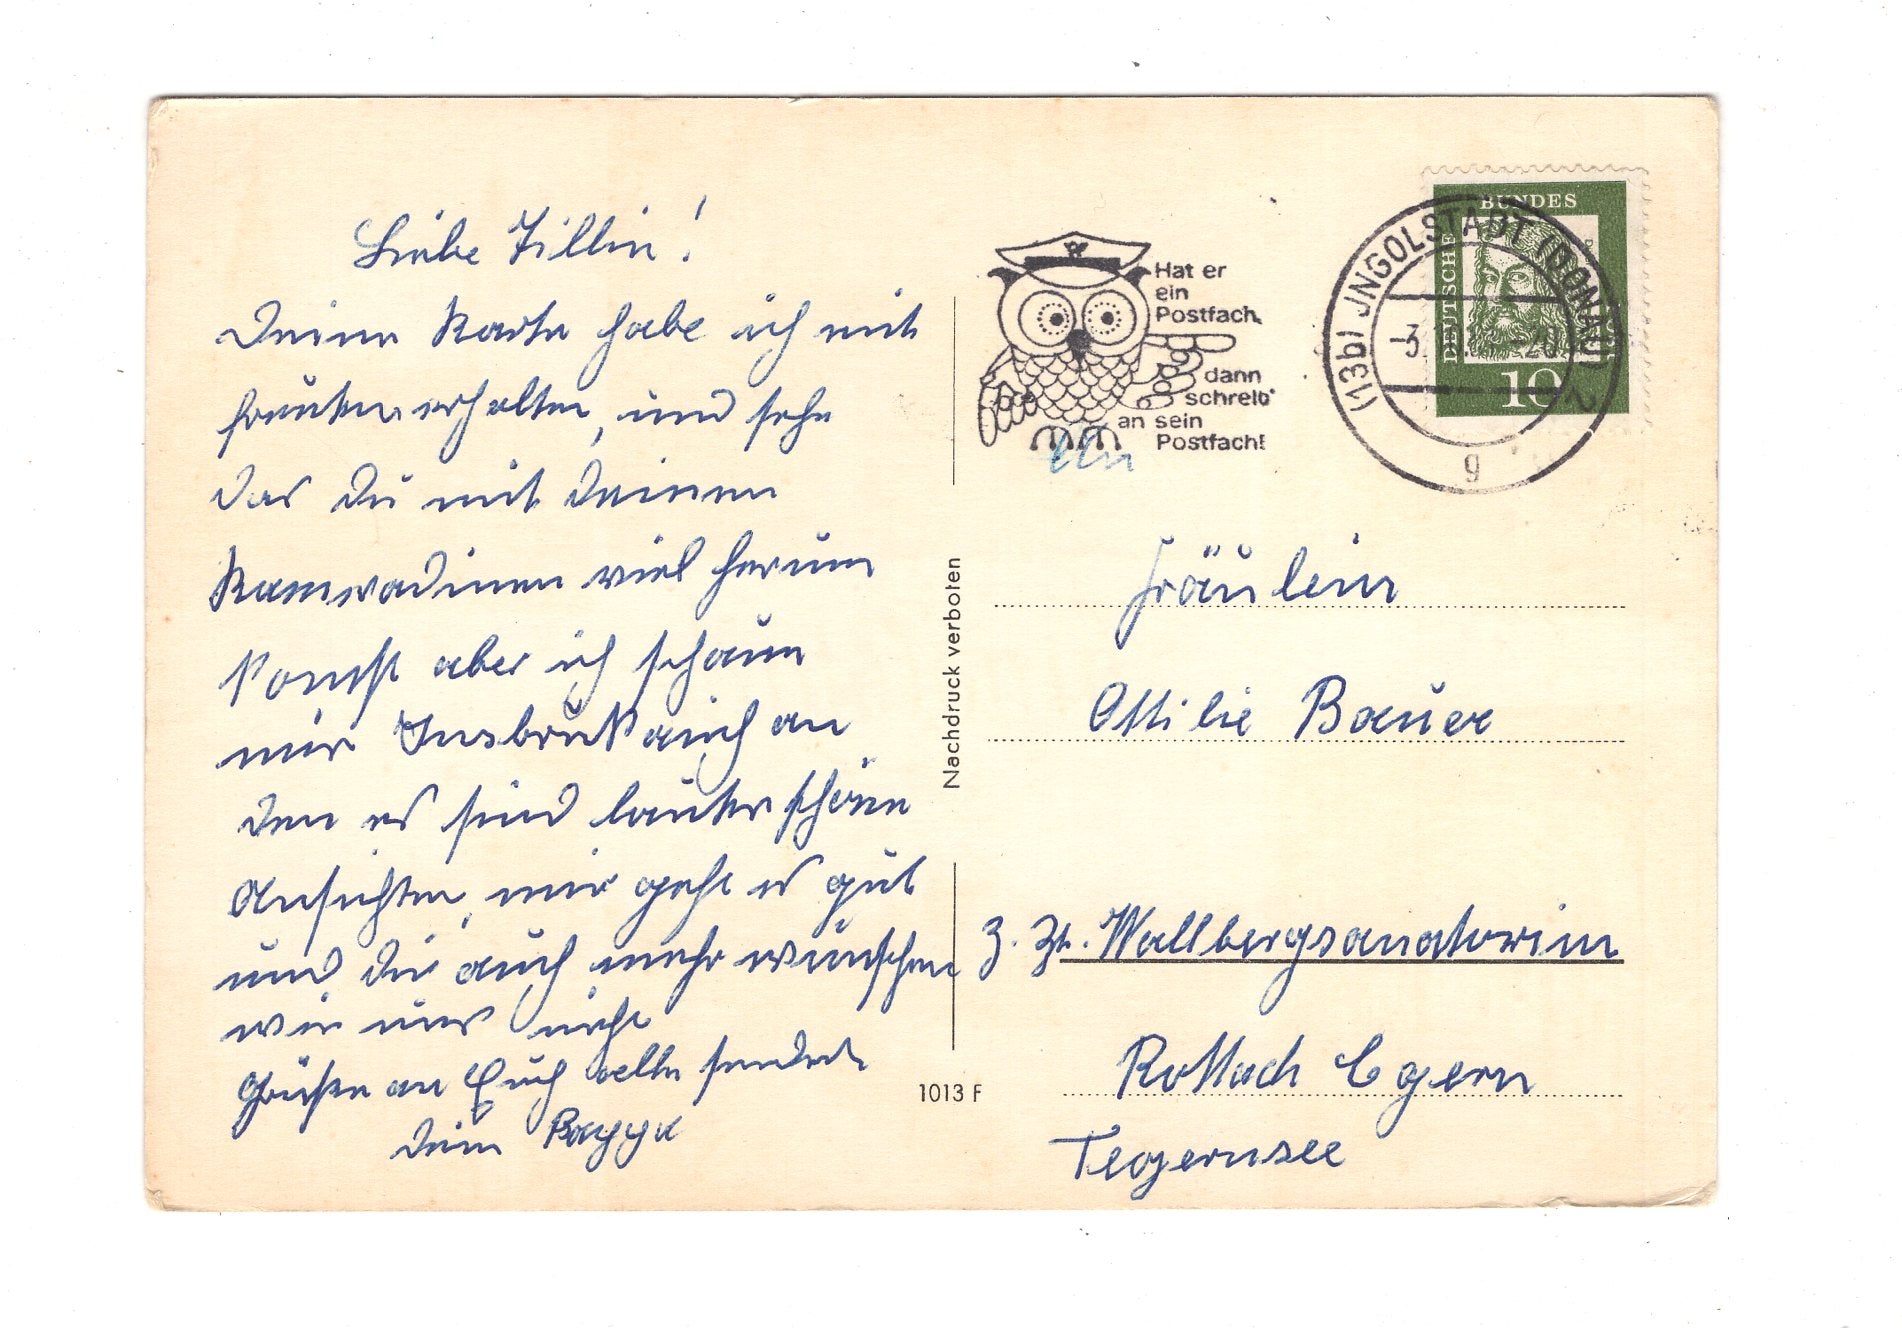 Liebe Tillin!
Deine Karte habe ich mit
freuden erhalten, und sehe
das du mit deinen
Kamaradinen viel herum
Komst aber ich schaue
mir Insbruk auch an
den es sind lauter schöne
Ansichten, mir geht es gut
und dir auch mehr wünschen
wir uns nicht
Grüße an Euch alle sendet
dein
Nachdruck verboten
1013 F
Hat er
ein
Postfach,
dann
schreib'
an sein
Postfach!
(13b) INGOLSTADT (DONAU) 2
g
DEUTSCHE BUNDESPOST
10
Fräulein
Ottilie Bauer
z. Zt. Wallbergsanatorium
Rottach Egern
Tegernsee